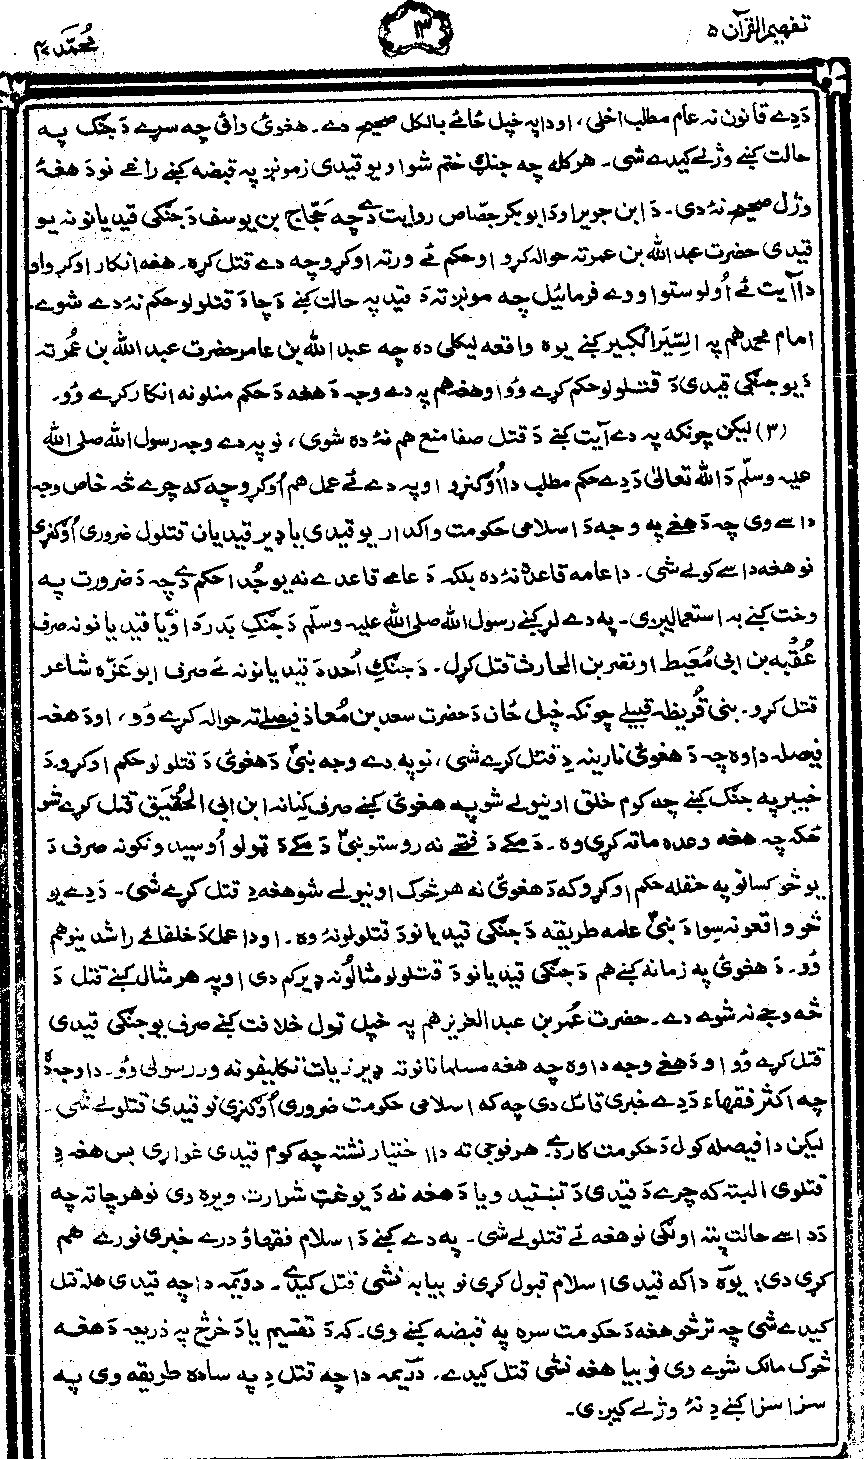 تفهیم القرآن ۵
۳
مُحَمَّد ۴۷
دَدے قانون نہ عام مطلب اخلی، او دا پہ خپل ځائے بالکل صحیح دے۔ هغوئ وائی چہ سړے دَ جنګ پہ
حالت کښے وژلے کیدے شی۔ هرکلہ چہ جنګ ختم شو او یو قیدی زمونږ پہ قبضہ کښے راغے نو دَ هغهٔ
وژل صحیح نۂ دی۔ دَ ابن جریر او دَ ابوبکر جصاص روایت دے چہ حَجّاج بن یوسف دَ جنګی قیدیانو نہ یو
قیدی حضرت عبد الله بن عمر تہ حوالہ کړو او حکم ئے ورتہ اوکړو چہ دے قتل کړہ۔ هغہ انکار اوکړو او
دا آیت ئے اُولوستو او وے فرمائیل چہ مونږ تہ دَ قید پہ حالت کښے دَ چا دَ قتلولو حکم نۂ دے شوے۔
امام محمد هم پہ السِّیَر الکبیر کښے یوہ واقعہ لیکلی دہ چہ عبد الله بن عامر حضرت عبد الله بن عُمَر تہ
دَ یو جنګی قیدی دَ قتلولو حکم کړے وُو او هغہ هم پہ دے وجہ دَ هغہ دَ حکم منلو نہ انکار کړے وُو۔
(۳) لیکن چونکہ پہ دے آیت کښے دَ قتل صفا منع هم نۂ دہ شوی، نو پہ دے وجہ رسول الله صلی الله
علیہ وسلّم دَ الله تعالیٰ دَ دے حکم مطلب دا اُوګنړو او پہ دے ئے عمل هم اُوکړو چہ کہ چرے څہ خاص وجہ
داسے وی چہ دَ هغے پہ وجہ دَ اسلامی حکومت واکدار یو قیدی یا ډیر قیدیان قتلول ضروری اُوګنړی
نو هغہ داسے کولے شی۔ دا عامہ قاعدہ نۂ دہ بلکہ دَ عامے قاعدے نہ یو جُدا حکم دے چہ دَ ضرورت پہ
وخت کښے بہ استعمالیږی۔ پہ دے لړ کښے رسول الله صلی الله علیہ وسلّم دَ جنګِ بدر دَ اویا قیدیانو نہ صرف
عُقبہ بن ابی مُعَیط او نضر بن الحارث قتل کړل۔ دَ جنګِ اُحد دَ قیدیانو نہ ئے صرف ابو عَزّہ شاعر
قتل کړو۔ بنی قُریظہ قبیلے چونکہ خپل ځان دَ حضرت سعد بن مُعاذ فیصلے تہ حوالہ کړے وُو، او دَ هغہ
فیصلہ دا وہ چہ دَ هغوئ نارینہ دِ قتل کړے شی، نو پہ دے وجہ نبیؐ دَ هغوئ دَ قتلولو حکم اوکړو۔ دَ
خیبر پہ جنګ کښے چہ کوم خلق اونیولے شو پہ هغوئ کښے صرف کِنانہ ابن ابی الحُقَیق قتل کړے شو
ځکہ چہ هغہ وعدہ ماتہ کړی وہ۔ دَ مکے دَ فتحے نہ روستو نبیؐ دَ مکے دَ ټولو اُوسیدونکو نہ صرف دَ
یو څو کسانو پہ حقلہ حکم اوکړو کہ دَ هغوئ نہ هر څوک اونیولے شو هغہ دِ قتل کړے شی۔ دَ دے یو
څو واقعو نہ سوا دَ نبیؐ عامہ طریقہ دَ جنګی قیدیانو دَ قتلولو نۂ وہ۔ او دا عمل دَ خلفائے راشدینو هم
وُو۔ دَ هغوئ پہ زمانہ کښے هم دَ جنګی قیدیانو دَ قتلولو مثالونہ ډیر کم دی او پہ هر مثال کښے قتل دَ
څہ وجے نہ شوے دے۔ حضرت عُمر بن عبد العزیز هم پہ خپل ټول خلافت کښے صرف یو جنګی قیدی
قتل کړے وُو او دَ هغے وجہ دا وہ چہ هغہ مسلمانانو تہ ډیر زیات تکلیفونہ وررسولی وُو۔ دا وجہ دہ
چہ اکثر فقهاء دَ دے خبری قائل دی چہ کہ اسلامی حکومت ضروری اُوګنړی نو قیدی قتلولے شی۔
لیکن دا فیصلہ کول دَ حکومت کار دے۔ هر فوجی تہ دا اختیار نشتہ چہ کوم قیدی غواړی بس هغہ دِ
قتلوی البتہ کہ چرے دَ قیدی دَ تښتید و یا دَ هغہ نہ دَ یو غټ شرارت ویرہ وی نو هر چاتہ چہ
دَ داسے حالت پتہ اولګی نو هغہ ئے قتلولے شی۔ پہ دے کښے دَ اسلام فقهاؤ درے خبری نورے هم
کړی دی؛ یوہ دا کہ قیدی اسلام قبول کړی نو بیا بہ نشی قتل کیدے۔ دویمہ دا چہ قیدی هلہ قتل
کیدے شی چہ تر څو هغہ دَ حکومت سرہ پہ قبضہ کښے وی۔ کہ دَ تقسیم یا دَ خرڅ پہ ذریعہ دَ هغہ
څوک مالک شوے وی نو بیا هغہ نشی قتل کیدے۔ دریمہ دا چہ قتل دِ پہ سادہ طریقہ وی پہ
سزا سزا کښے دِ نۂ وژلے کیږی۔